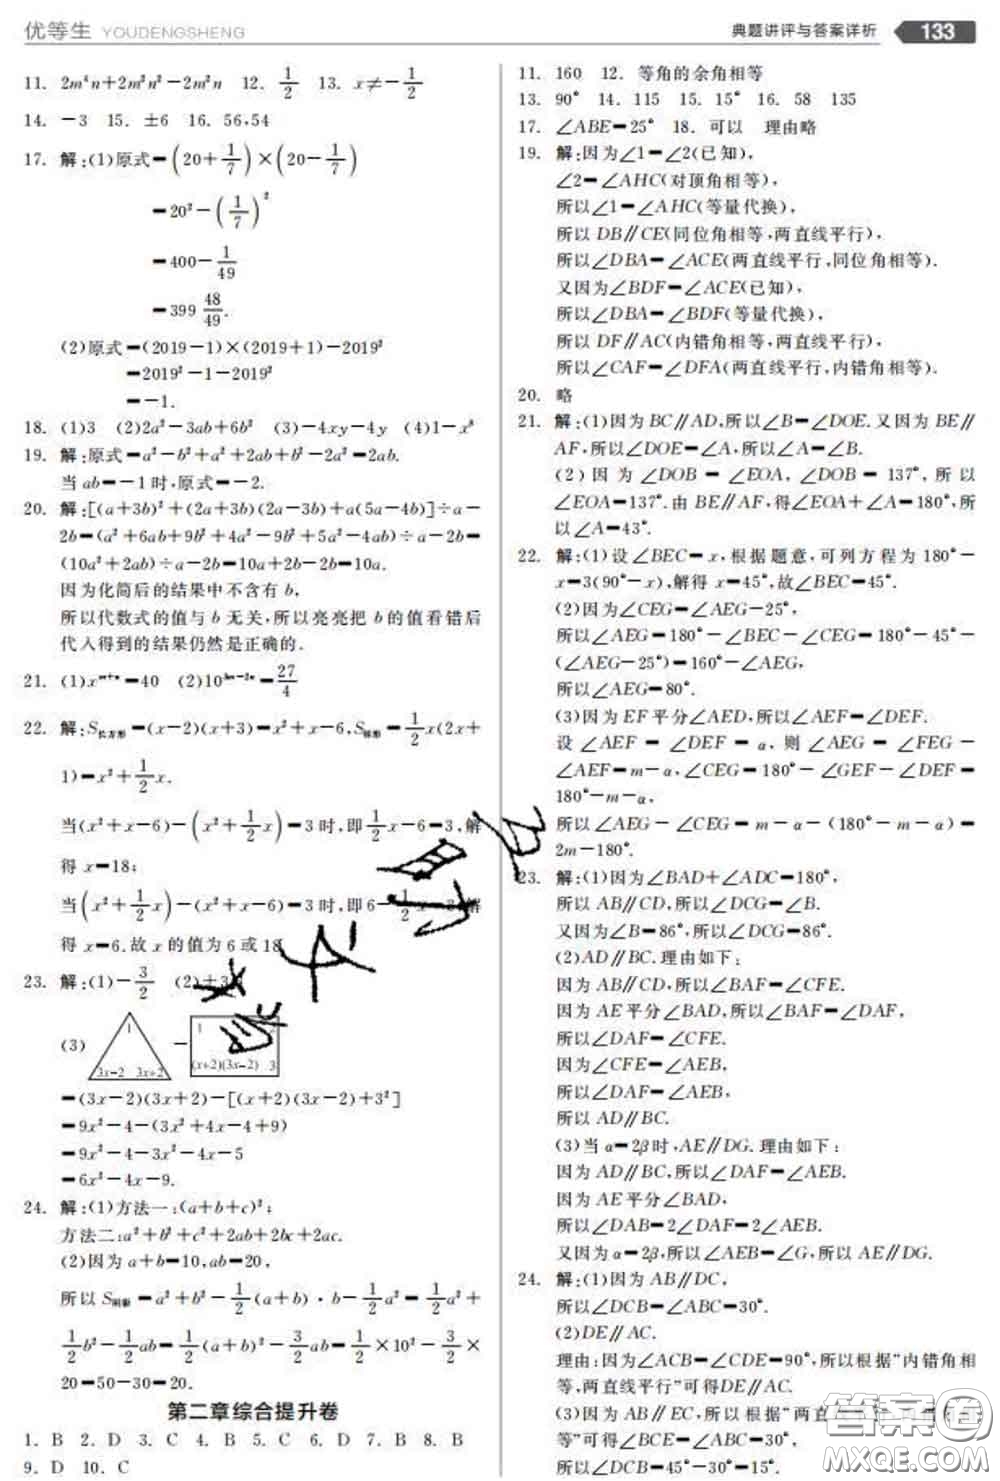 优等生 YOUDENGSHENG
典题讲评与答案详析 133
11. 2m⁴n+2m³n²-2m²n 12. 1/2 13. x≠-1/2
14. -3 15. ±6 16. 56,54
17. 解:(1)原式=(20+1/7)×(20-1/7)
=20²-(1/7)²
=400-1/49
=399 48/49.
(2)原式=(2019-1)×(2019+1)-2019²
=2019²-1-2019²
=-1.
18. (1)3 (2)2a²-3ab+6b² (3)-4xy-4y (4)1-x⁸
19. 解:原式=a²-b²+a²+2ab+b²-2a²=2ab.
当ab=-1时,原式=-2.
20. 解:[(a+3b)²+(2a+3b)(2a-3b)+a(5a-4b)]÷a-
2b=(a²+6ab+9b²+4a²-9b²+5a²-4ab)÷a-2b=
(10a²+2ab)÷a-2b=10a+2b-2b=10a.
因为化简后的结果中不含有b,
所以代数式的值与b无关,所以亮亮把b的值看错后
代入得到的结果仍然是正确的.
21. (1)xᵐ⁺ⁿ=40 (2)10³ᵐ⁻²ⁿ=27/4
22. 解:S长方形=(x-2)(x+3)=x²+x-6,S梯形=1/2x(2x+
1)=x²+1/2x.
当(x²+x-6)-(x²+1/2x)=3时,即1/2x-6=3,解
得x=18;
当(x²+1/2x)-(x²+x-6)=3时,即6-1/2x=3,解
得x=6.故x的值为6或18
23. 解:(1)-3/2 (2)+3
(3) 1 3x-2 3x+2 - 1 2 (x+2)(3x-2) 3
=(3x-2)(3x+2)-[(x+2)(3x-2)+3²]
=9x²-4-(3x²+4x-4+9)
=9x²-4-3x²-4x-5
=6x²-4x-9.
24. 解:(1)方法一:(a+b+c)²;
方法二:a²+b²+c²+2ab+2bc+2ac.
(2)因为a+b=10,ab=20,
所以S阴影=a²+b²-1/2(a+b)·b-1/2a²=1/2a²+
1/2b²-1/2ab=1/2(a+b)²-3/2ab=1/2×10²-3/2×
20=50-30=20.
第二章综合提升卷
1. B 2. D 3. C 4. B 5. C 6. D 7. B 8. B
9. D 10. C
11. 160 12. 等角的余角相等
13. 90° 14. 115 15. 15° 16. 58 135
17. ∠ABE=25° 18. 可以 理由略
19. 解:因为∠1=∠2(已知),
∠2=∠AHC(对顶角相等),
所以∠1=∠AHC(等量代换),
所以DB∥CE(同位角相等,两直线平行),
所以∠DBA=∠ACE(两直线平行,同位角相等).
又因为∠BDF=∠ACE(已知),
所以∠DBA=∠BDF(等量代换),
所以DF∥AC(内错角相等,两直线平行),
所以∠CAF=∠DFA(两直线平行,内错角相等).
20. 略
21. 解:(1)因为BC∥AD,所以∠B=∠DOE.又因为BE∥
AF,所以∠DOE=∠A,所以∠A=∠B.
(2)因为∠DOB=∠EOA,∠DOB=137°,所以
∠EOA=137°.由BE∥AF,得∠EOA+∠A=180°,所
以∠A=43°.
22. 解:(1)设∠BEC=x,根据题意,可列方程为180°-
x=3(90°-x),解得x=45°,故∠BEC=45°.
(2)因为∠CEG=∠AEG-25°,
所以∠AEG=180°-∠BEC-∠CEG=180°-45°-
(∠AEG-25°)=160°-∠AEG,
所以∠AEG=80°.
(3)因为EF平分∠AED,所以∠AEF=∠DEF.
设∠AEF=∠DEF=α,则∠AEG=∠FEG-
∠AEF=m-α,∠CEG=180°-∠GEF-∠DEF=
180°-m-α,
所以∠AEG-∠CEG=m-α-(180°-m-α)=
2m-180°.
23. 解:(1)因为∠BAD+∠ADC=180°,
所以AB∥CD,所以∠DCG=∠B.
又因为∠B=86°,所以∠DCG=86°.
(2)AD∥BC.理由如下:
因为AB∥CD,所以∠BAF=∠CFE.
因为AE平分∠BAD,所以∠BAF=∠DAF,
所以∠DAF=∠CFE.
因为∠CFE=∠AEB,
所以∠DAF=∠AEB,
所以AD∥BC.
(3)当α=2β时,AE∥DG.理由如下:
因为AD∥BC,所以∠DAF=∠AEB.
因为AE平分∠BAD,
所以∠DAB=2∠DAF=2∠AEB.
又因为α=2β,所以∠AEB=∠G,所以AE∥DG.
24. 解:(1)因为AB∥DC,
所以∠DCB=∠ABC=30°.
(2)DE∥AC.
理由:因为∠ACB=∠CDE=90°,所以根据"内错角相
等,两直线平行"可得DE∥AC.
(3)因为AB∥EC,所以根据"两直
等"可得∠BCE=∠ABC=30°,
所以∠DCE=45°-30°=15°.
答案圈
MXQE.COM